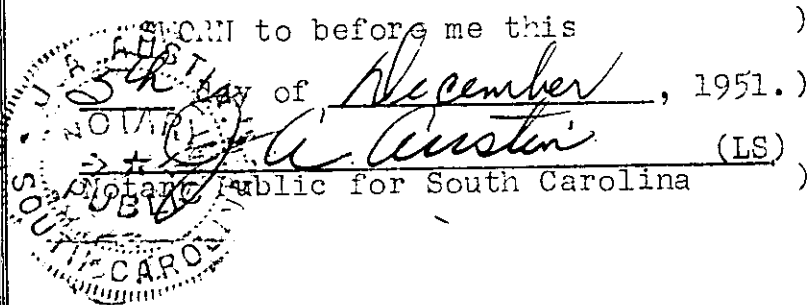 SWORN to before me this )
5th day of December, 1951. )
J. A. Austin (LS)
Notary Public for South Carolina )
J. A. AUSTIN
NOTARY
PUBLIC
SOUTH CAROLINA